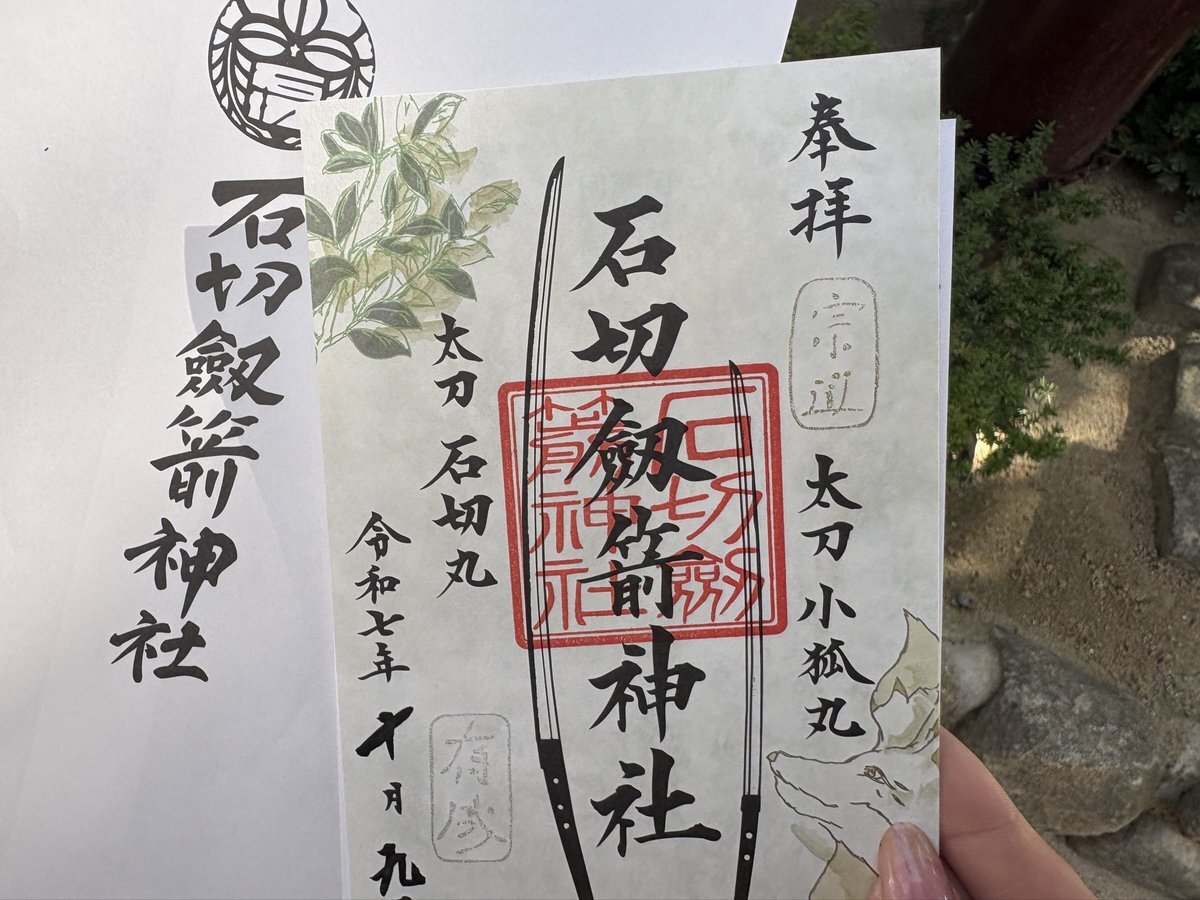 奉拝
宗近
太刀 小狐丸
石切劔箭神社
石切劔箭神社
太刀 石切丸
有成
令和七年 十月 九
石切劔箭神社